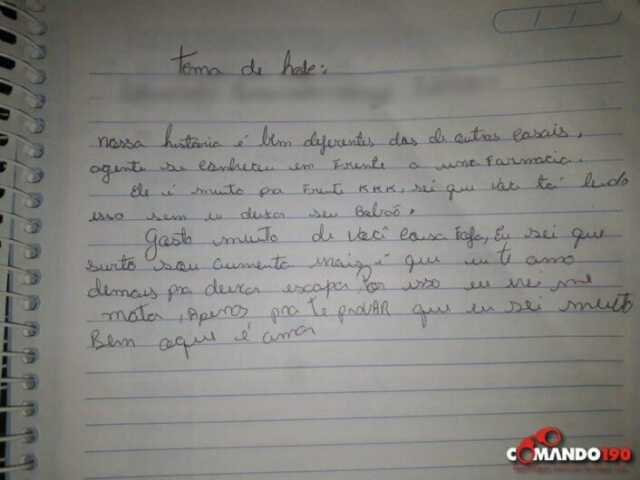 Tema de hoje:
nossa história é bem diferentes das di outras casais,
agente se conheceu em Frente a uma Farmacia.
Ele é muito pra Frente KKK, sei que vai tá lendo
isso sem eu deixar seu Babaõ.
Gosto muito de você coisa Fofa, Eu sei que
surto sou cumenta maiz é que eu te amo
demais pra deixar escapar por isso eu vei me
matar, Apenas pra te PROVAR que eu sei muito
Bem oque é amor
COMANDO190